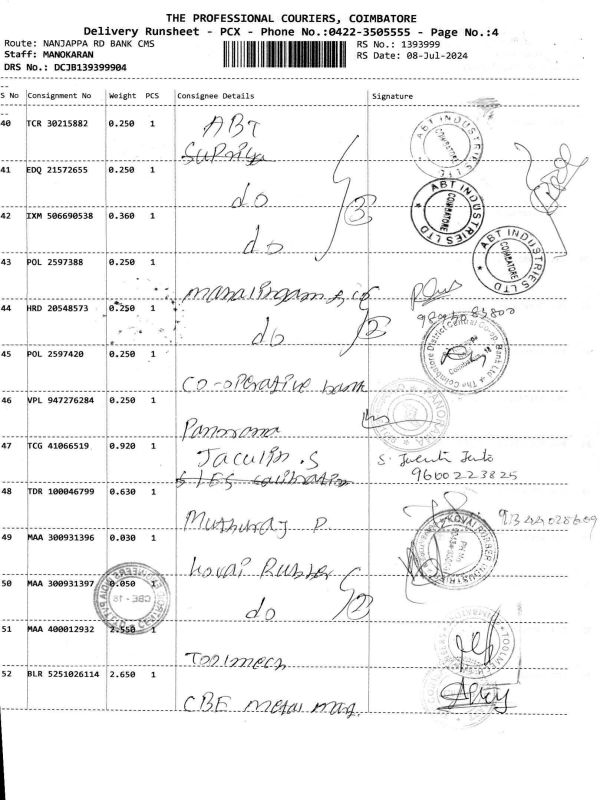 THE PROFESSIONAL COURIERS, COIMBATORE
Delivery Runsheet - PCX - Phone No.:0422-3505555 - Page No.:4
Route: NANJAPPA RD BANK CMS RS No.: 1393999
Staff: MANOKARAN RS Date: 08-Jul-2024
DRS No.: DCJB139399904
S No Consignment No Weight PCS Consignee Details Signature
40 TCR 30215882 0.250 1 ABT
ABT INDUSTRIES LTD COIMBATORE
Supriya
41 EDQ 21572655 0.250 1
do
ABT INDUSTRIES LTD COIMBATORE
3
42 IXM 506690538 0.360 1
do
ABT INDUSTRIES LTD COIMBATORE
43 POL 2597388 0.250 1
44 HRD 20548573 0.250 1
do
2
45 POL 2597420 0.250 1
Co-operative bank
The Coimbatore District Central Co-op. Bank Ltd
46 VPL 947276284 0.250 1
Panorama
PANORAMA
47 TCG 41066519 0.920 1 Jaculin.S
9600223825
48 TDR 100046799 0.630 1
Muthuraj P
49 MAA 300931396 0.030 1
Kovai Rubber
KOVAI RUBBER INDUSTRIES
50 MAA 300931397 0.050
do
2
CBE - 18
51 MAA 400012932 2.550 1
Toolmech
52 BLR 5251026114 2.650 1
CBE metal mart.